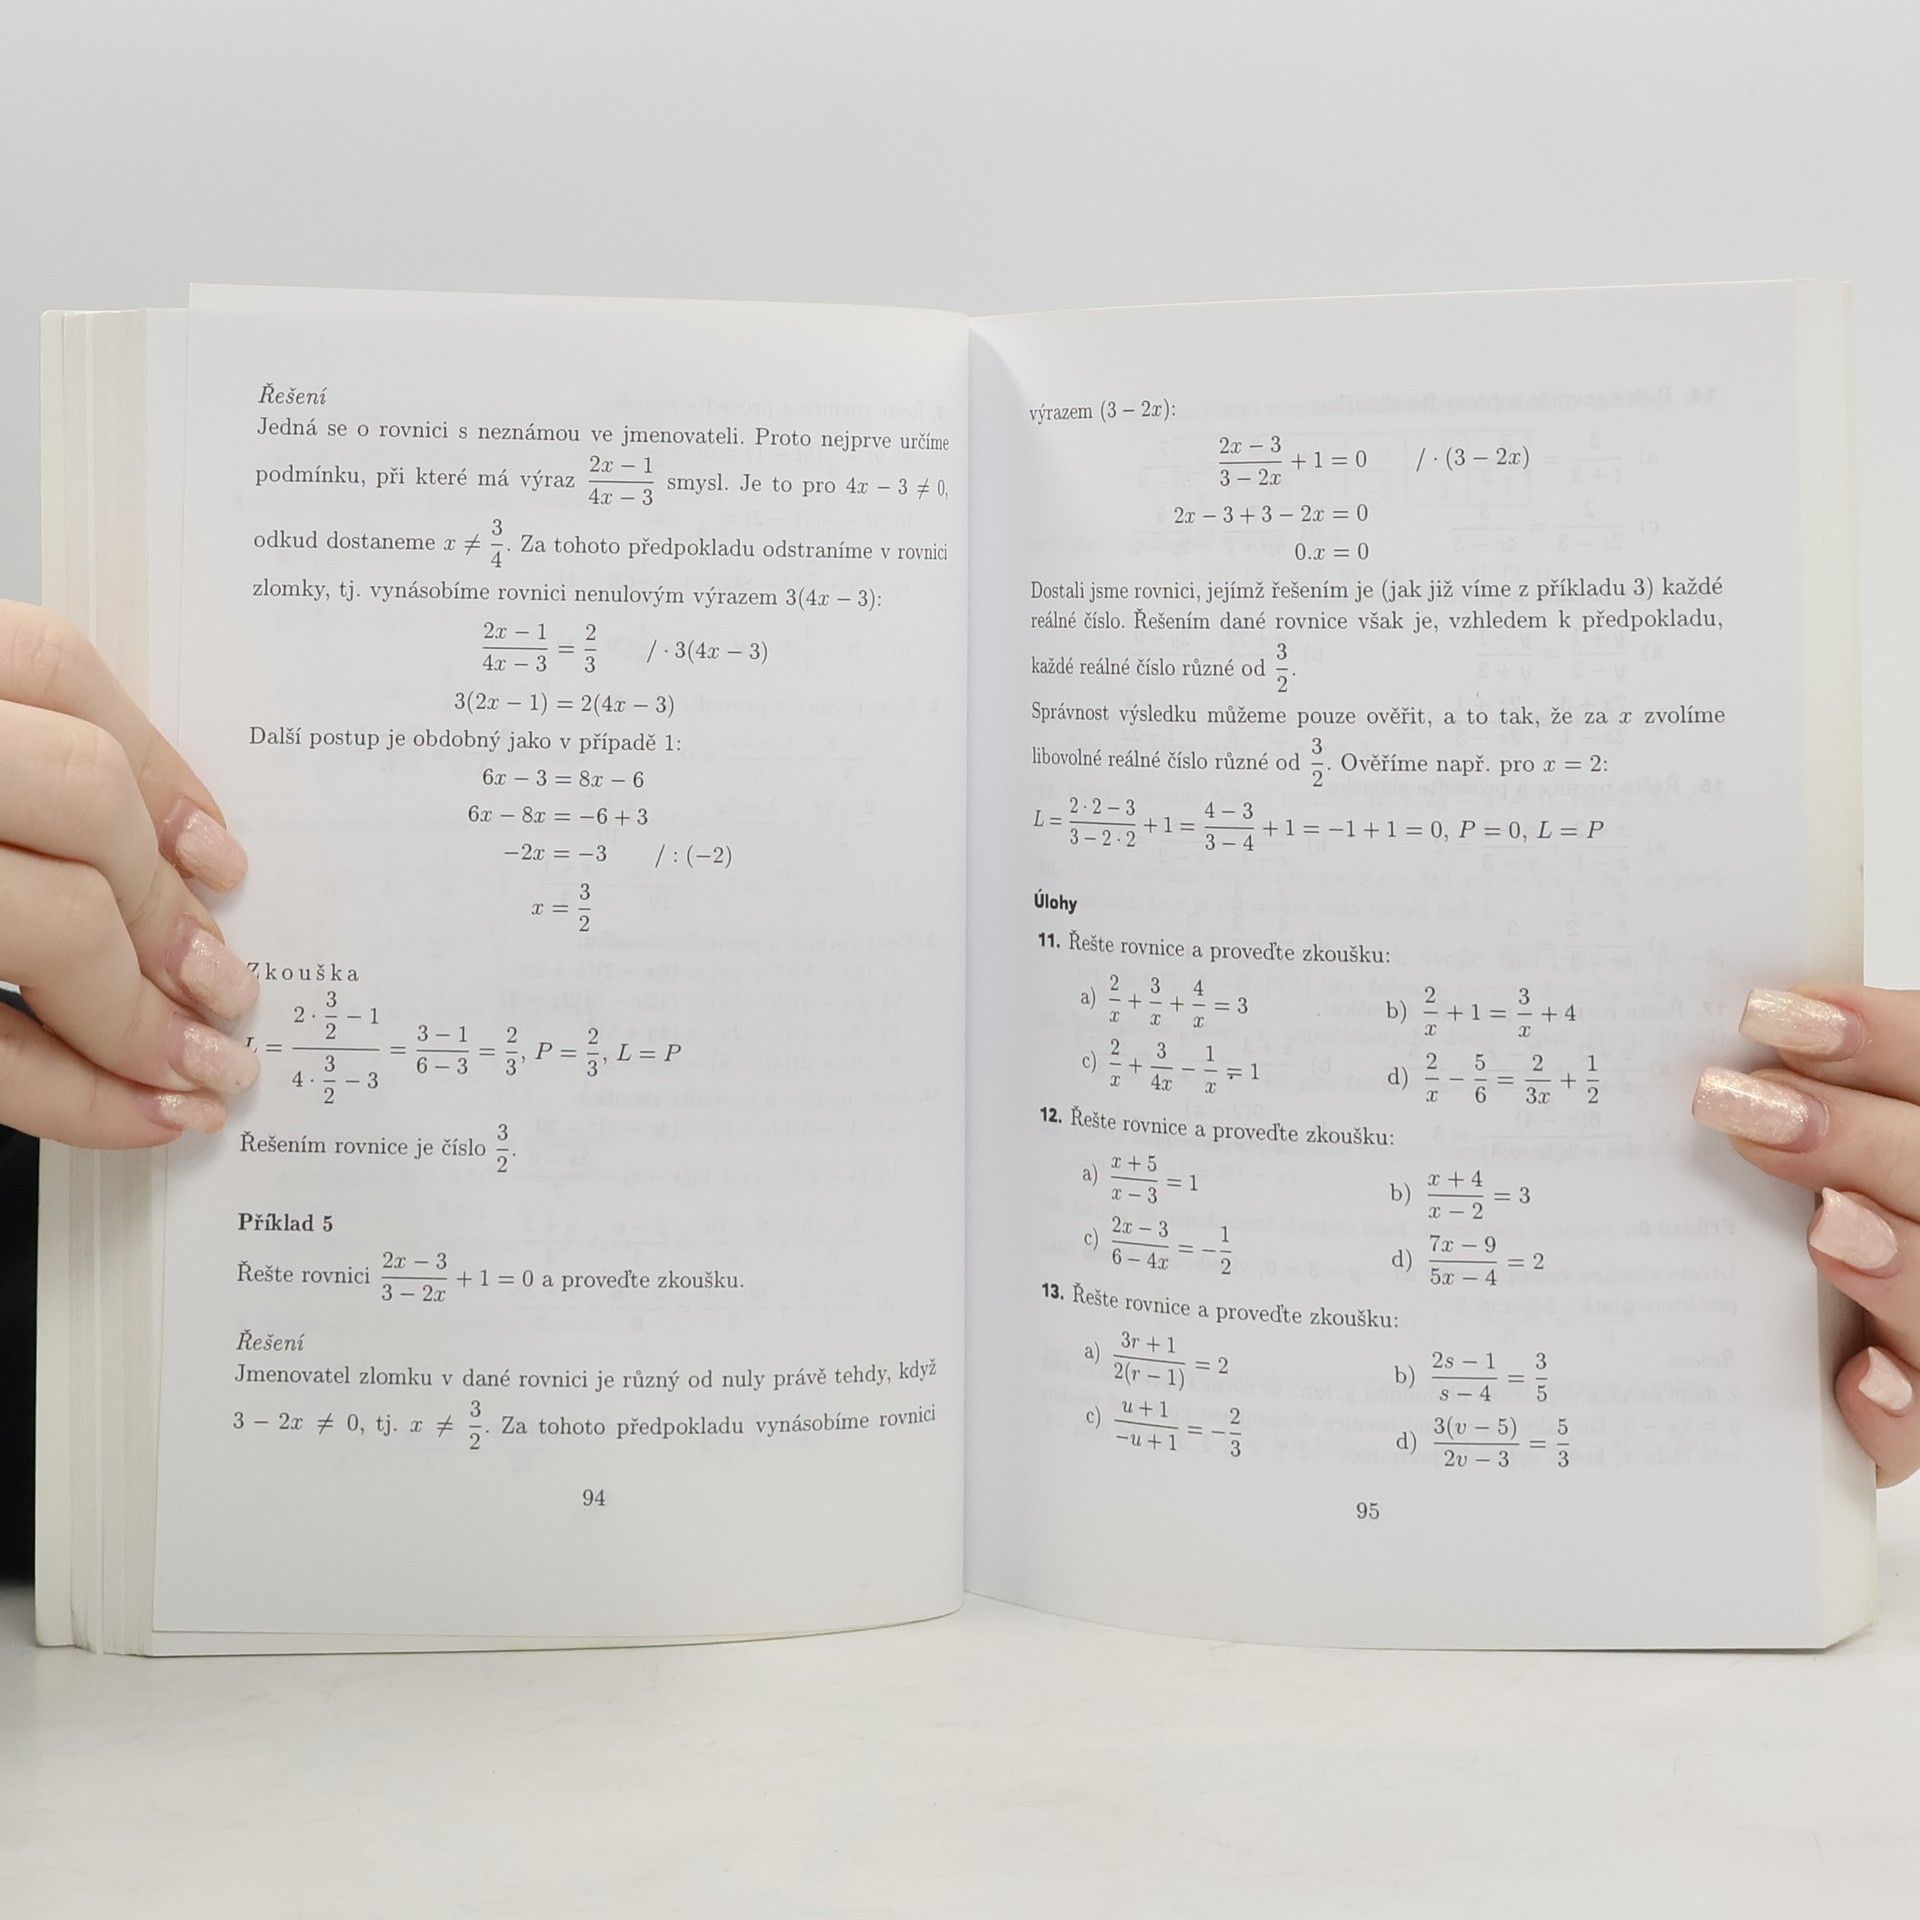 Řešení
Jedná se o rovnici s neznámou ve jmenovateli. Proto nejprve určíme
podmínku, při které má výraz (2x − 1)/(4x − 3) smysl. Je to pro 4x − 3 ≠ 0,
odkud dostaneme x ≠ 3/4. Za tohoto předpokladu odstraníme v rovnici
zlomky, tj. vynásobíme rovnici nenulovým výrazem 3(4x − 3):
(2x − 1)/(4x − 3) = 2/3 / · 3(4x − 3)
3(2x − 1) = 2(4x − 3)
Další postup je obdobný jako v případě 1:
6x − 3 = 8x − 6
6x − 8x = −6 + 3
−2x = −3 / : (−2)
x = 3/2
Zkouška
L = (2 · 3/2 − 1)/(4 · 3/2 − 3) = (3 − 1)/(6 − 3) = 2/3, P = 2/3, L = P
Řešením rovnice je číslo 3/2.
Příklad 5
Řešte rovnici (2x − 3)/(3 − 2x) + 1 = 0 a proveďte zkoušku.
Řešení
Jmenovatel zlomku v dané rovnici je různý od nuly právě tehdy, když
3 − 2x ≠ 0, tj. x ≠ 3/2. Za tohoto předpokladu vynásobíme rovnici
94
výrazem (3 − 2x):
(2x − 3)/(3 − 2x) + 1 = 0 / · (3 − 2x)
2x − 3 + 3 − 2x = 0
0.x = 0
Dostali jsme rovnici, jejímž řešením je (jak již víme z příkladu 3) každé
reálné číslo. Řešením dané rovnice však je, vzhledem k předpokladu,
každé reálné číslo různé od 3/2.
Správnost výsledku můžeme pouze ověřit, a to tak, že za x zvolíme
libovolné reálné číslo různé od 3/2. Ověříme např. pro x = 2:
L = (2 · 2 − 3)/(3 − 2 · 2) + 1 = (4 − 3)/(3 − 4) + 1 = −1 + 1 = 0, P = 0, L = P
Úlohy
11. Řešte rovnice a proveďte zkoušku:
a) 2/x + 3/x + 4/x = 3 b) 2/x + 1 = 3/x + 4
c) 2/x + 3/4x − 1/x = 1 d) 2/x − 5/6 = 2/3x + 1/2
12. Řešte rovnice a proveďte zkoušku:
a) (x + 5)/(x − 3) = 1 b) (x + 4)/(x − 2) = 3
c) (2x − 3)/(6 − 4x) = −1/2 d) (7x − 9)/(5x − 4) = 2
13. Řešte rovnice a proveďte zkoušku:
a) (3r + 1)/(2(r − 1)) = 2 b) (2s − 1)/(s − 4) = 3/5
c) (u + 1)/(−u + 1) = −2/3 d) 3(v − 5)/(2v − 3) = 5/3
95